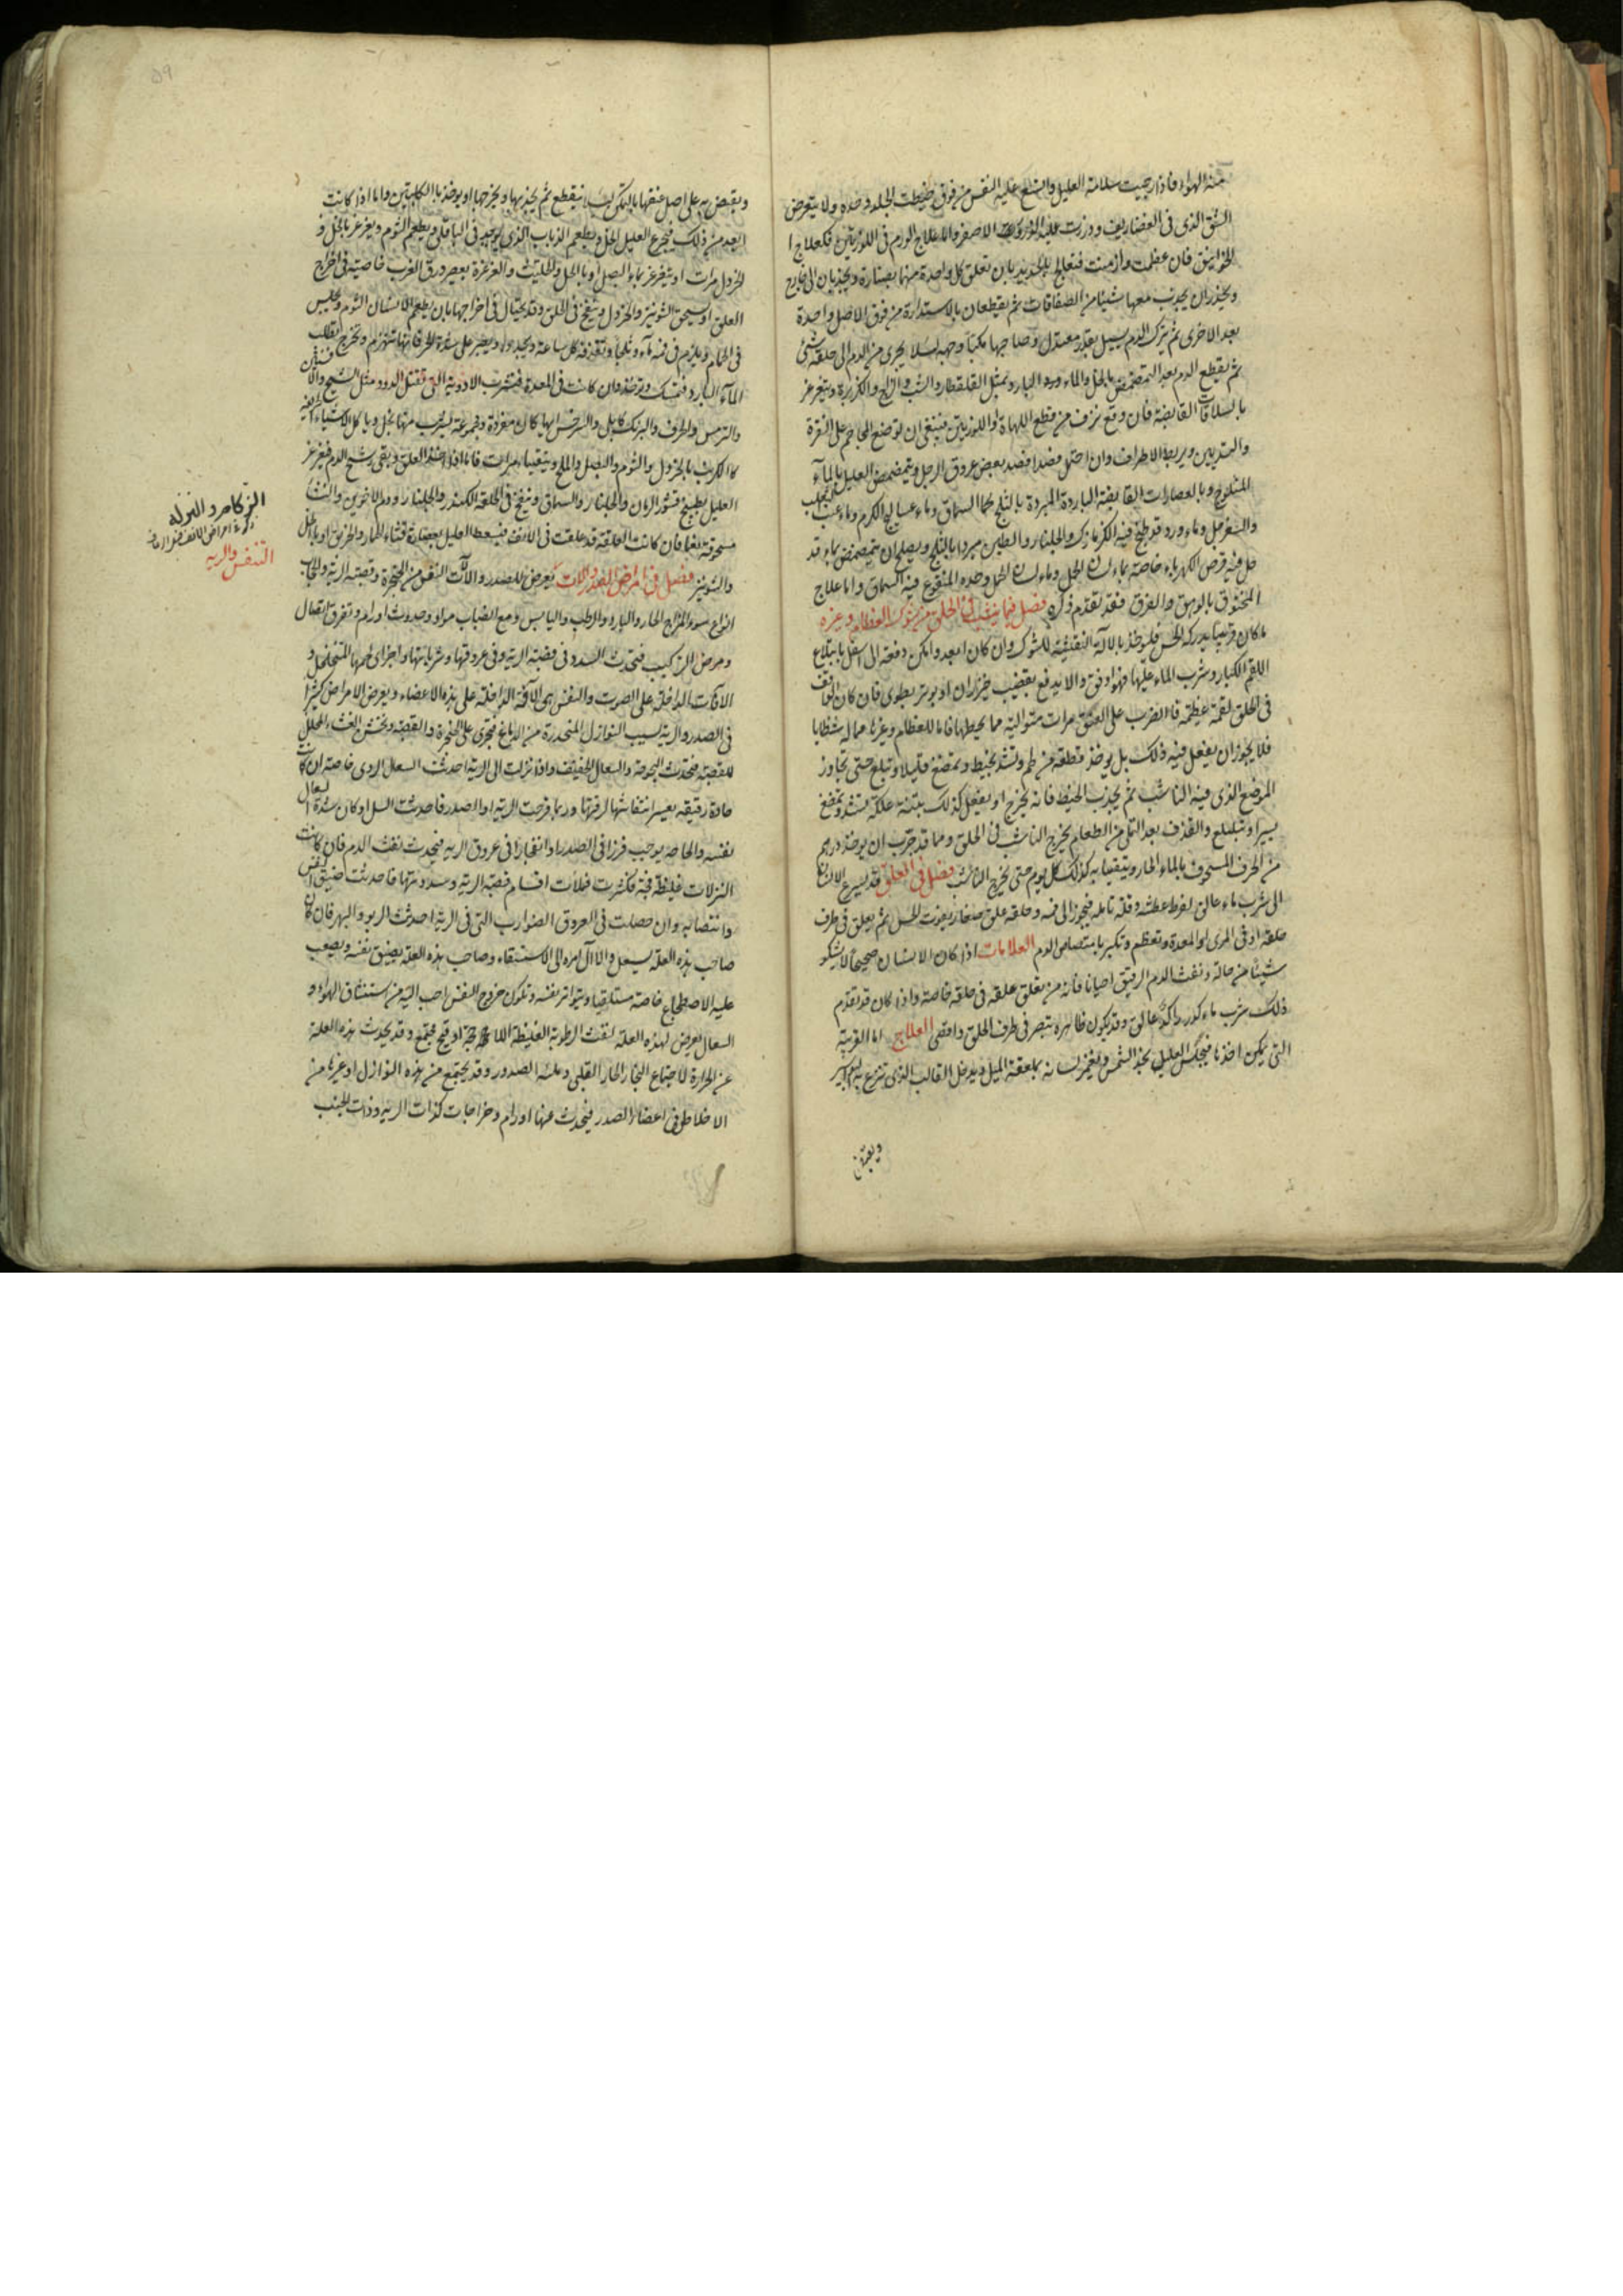 منه الهواء فاذا رجيت سلامة العليل واتسع عليه النفس من فوق خيطت الجلد وحده ولا يتعرض
الشق الذى فى الغضاريف وذرّرت عليه الذرور الاصفر واما علاج الورم فى اللوزتين فكعلاج
الخوانيق فان عظمت وازمنت فتعالج بالحديد بان تعلق كل واحدة منهما بصنارة ويجذبان الى خارج
ويحذر ان يجذب معها شيئا من الصفاقات ثم يقطعان بالاستدارة من فوق الاصل واحدة
بعد الاخرى ثم يترك الدم يسيل بقدر معتدل وصاحبها مكبا وجهه لئلا يجرى من الدم الى حلقه شئ
ثم يقطع الدم بعد التمضمض بالخل والماء ورد البارد وبمثل القلقطار والشب والزاج والكزبرة ويتغرغر
بالسلاقات القابضة فان وقع نزف من قطع اللهاة واللوزتين فينبغى ان توضع المحاجم على النقرة
والثديين ويربط الاطراف وان احتمل فصدا فصد بعض عروق الرجل ويتمضمض العليل بالماء
المثلوج وبالعصارات القابضة الباردة المبردة بالثلج كماء السماق وماء عساليج الكرم وماء عنب
والسفرجل وماء ورد قد طبخ فيه الكزمازك والجلنار والطين مبردا بالثلج ويصلح ان يتمضمض بماء قد
حل فيه قرص الكهرباء خاصة بماء لسان الحمل وماء لسان الحمل وحده المنقوع فيه السماق واما علاج
المخنوق بالوهق والغرق فقد تقدم ذكره فصل فيما ينشب فى الحلق من شوك العظام وغيره
ما كان قريبا يدركه الحس فليوخذ بالالة النقية للشوك وان كان ابعد وامكن دفعه الى اسفل بابتلاع
اللقم الكبار وشرب الماء عليها فهو اوفق والا يدفع بقضيب خيزران او بوتر يطوى فان كان الواقف
فى الحلق لقمة عظيمة فالضرب على العنق مرات متوالية مما يحيطها فاما للعظام وغيرها مما له شظايا
فلا يجوز ان يفعل فيه ذلك بل يوخذ قطعة من لحم وتشد بخيط وتمضغ قليلا وتبلع حتى تجاوز
الموضع الذى فيه الناشب ثم يجذب الخيط فانه يخرج او يفعل كذلك بتينة علكة تشد وتمضغ
يسيرا وتبلع والقذف بعد التملى من الطعام يخرج الناشب فى الحلق ومما قد جرب ان يوخذ درهم
من الحرف المسحوق بالماء الحار ويتقيا به كذلك كل يوم حتى يخرج الناشب فصل فى العلق قد يسرع الانسان
الى شرب ماء عالق لفرط عطشه وقلة تامله فيجوز الى فمه وحلقه علق صغار يفوت الحس ثم يعلق فى طرف
حلقه او فى المرى او المعدة وتعظم وتكبر بامتصاص الدم العلامات اذا كان الانسان صحيحا لا يشكو
شيئا من حاله ونفث الدم الرقيق احيانا فانه من تعلق علقة فى حلقه خاصة واذا كان قد تقدم
ذلك شرب ماء كدر راكد عالق وقد يكون ظاهرة تبصر فى طرف الحلق واقصى العلاج اما القريبة
التى يمكن اخذها فيجلس العليل بحذاء الشمس ويغمز لسانه بملعقة الميل ويدخل القالب الذى تنزع به
ويقبض
ويقبض به على اصل عنقها ثم يجذبها ويخرجها او يوخذ بالكلبتين واما اذا كانت
ابعد من ذلك فيجرع العليل الخل ويطعم الذباب الذى يوجد فى الباقلى ويطعم الثوم ويغرغر بالخل و
الخردل مرات او يتغرغر بماء البصل او بالخل والحلتيت والغرغرة بعصير ورق الغرب خاصيته فى اخراج
العلق او يسحق الشونيز والخردل وينفخ فى الحلق وقد يحتال فى اخراجها بان يطعم الانسان الثوم ويجلس
فى الحمام ويلزم فى فمه ماء وثلجا ويقذفه كل ساعة ويجدد ويصبر على شدة الحر فانها تنهزم وتخرج لطلب
الماء البارد فتمسك وتوخذ وان كانت فى المعدة فتشرب الادوية التى تقتل الدود مثل الشيح والافسنتين
والترمس والحرف والبرنك كابلى والسرخس ايها كان مفردة ومجموعة ليشرب منها بخل وياكل الاشياء الحريفة
كالكرنب بالخردل والثوم والبصل والملح ويتقيا مرات فاما اذا اخذ العلق وبقى رشح الدم فيغرغر
العليل بطبيخ قشور الرمان والجلنار والسماق وينفخ فى الحلق الكندر والجلنار ودم الاخوين والنشا
مسحوقة نعما فان كانت العلقة قد علقت فى الانف فيسعط العليل بعصارة قثاء الحمار والخربق او بالخل
والشونيز فصل فى امراض الصدر والالات يعرض للصدر والالات التنفس من الحنجرة وقصبة الرية والحجاب
انواع سوء المزاج الحار والبارد والرطب واليابس ومع انصباب مواد وحدوث اورام وتفرق اتصال
ومرض التركيب فتحدث السدد فى قصبة الرية وفى عروقها وشرياناتها واجزاى لحمها المتخلخل و
الافات الداخلة على الصوت والنفس هى الافة الداخلة على هذه الاعضاء ويعرض الامراض كثيرا
فى الصدر والرية لسبب النوازل المنحدرة من الدماغ فتجرى على الحنجرة والقصبة وتخشن الغشاء المجلل
للقصبة فتحدث البحوحة والسعال الخفيف واذا نزلت الى الرية احدثت السعال الردى خاصة ان كانت
مادة رقيقة يعسر انتفاثها لرقتها وربما قرحت الرية او الصدر فاحدثت السل او كان شدة السعال
نفسه والحاحه يوجب فرزا فى الصدر او انفجارا فى عروق الرية فيحدث نفث الدم فان كانت
النزلات غليظة فجة فكثرت فملات اقسام قصبة الرية وسددتها فاحدثت ضيق النفس
وانتصابه وان حصلت فى العروق الضوارب التى فى الرية احدثت الربو والبهر فان كان
صاحب هذه العلة يسعل والا آل امره الى الاستسقاء وصاحب هذه العلة يضيق نفسه ويصعب
عليه الاضطجاع خاصة مستلقيا ويتواتر نفسه وتكون خروج النفس احب اليه من استنشاق الهواء و
السعال يعرض لهذه العلة لنفث الرطوبة الغليظة او قيح مجتمع وقد يحدث هذه العلة
عن الحرارة لاجتماع البخار الحار القلبى وملئه الصدور وقد يجتمع من هذه النوازل او غيرها من
الاخلاط فى اعضاء الصدر فيحدث عنها اورام وخراجات كذات الرية وذات الجنب
الزكام والنزله
التنفس والريه
۵۹